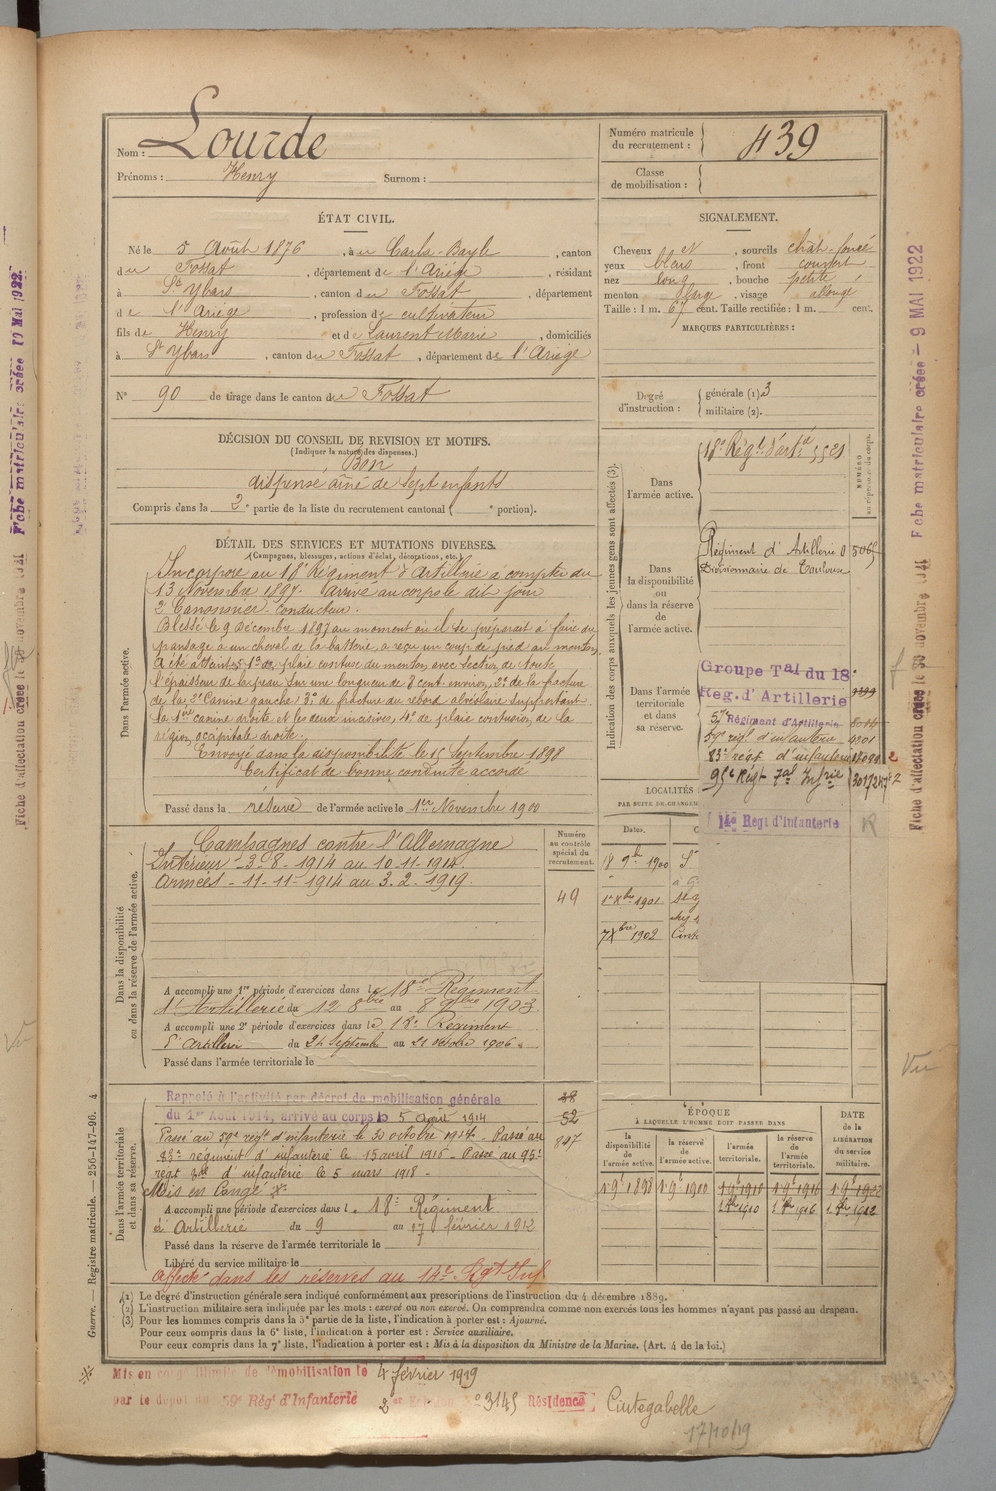 Nom : Lourde
Prénoms : Henry Surnom :
Numéro matricule du recrutement : 439
Classe de mobilisation :
ÉTAT CIVIL.
Né le 5 Août 1876, à Carla-Bayle, canton
du Fossat, département de l'Ariège, résidant
à St Ybars, canton du Fossat, département
de l'Ariège, profession de cultivateur
fils de Henry et de Laurent Marie, domiciliés
à St Ybars, canton du Fossat, département de l'Ariège
SIGNALEMENT.
Cheveux et sourcils chât-foncé
yeux bleus, front couvert
nez long, bouche petite
menton visage allongé
Taille : 1 m. 67 cent. Taille rectifiée : 1 m. cent.
MARQUES PARTICULIÈRES :
N° 90 de tirage dans le canton du Fossat
Degré d'instruction : générale (1) 3
militaire (2).
DÉCISION DU CONSEIL DE REVISION ET MOTIFS.
(Indiquer la nature des dispenses.)
Bon
dispensé ainé de sept enfants
Compris dans la 2e partie de la liste du recrutement cantonal ( e portion).
DÉTAIL DES SERVICES ET MUTATIONS DIVERSES.
(Campagnes, blessures, actions d'éclat, décorations, etc.)
Dans l'armée active.
Incorporé au 18e Régiment d'Artillerie à compter du
13 Novembre 1897. Arrivé au corps le dit jour
2e Canonnier conducteur.
Blessé le 9 Décembre 1897 au moment où il se préparait à faire du
pansage à un cheval de la batterie, a reçu un coup de pied au menton.
A été atteint 1° de plaie contuse du menton avec section de toute
l'épaisseur de la peau sur une longueur de 8 cent environ, 2° de la fracture
de la 2e Canine gauche, 3° de fracture du rebord alvéolaire supportant
la 1ère canine droite et les deux incisives, 4° de plaie contuse de la
région occipitale droite.
Envoyé dans la disponibilité le 15 Septembre 1898
Certificat de bonne conduite accordé
Passé dans la réserve de l'armée active le 1er Novembre 1900
Indication des corps auxquels les jeunes gens sont affectés (3).
NUMÉRO
au répertoire du corps.
Dans l'armée active.
18e Régt d'artie 5521
Dans la disponibilité ou dans la réserve de l'armée active.
Régiment d'Artillerie
Divisionnaire de Toulouse
Dans l'armée territoriale et dans sa réserve.
Groupe Tal du 18e
Reg. d'Artillerie
57e Régiment d'Artillerie
59e régt d'infanterie 4201
83e régt d'infanterie
95e Régt Tal Infrie
14e Régt d'Infanterie
R
LOCALITÉS
PAR SUITE DE CHANGEM
Dates.
18 9bre 1900
1er Xbre 1901
7 Xbre 1902
Dans la disponibilité ou dans la réserve de l'armée active.
Campagnes contre l'Allemagne
Intérieur - 3-8-1914 au 10-11-1914.
Armées - 11-11-1914 au 3-2-1919.
Numéro au contrôle spécial du recrutement.
49
A accompli une 1re période d'exercices dans le 18e Régiment
d'Artillerie du 12 8bre au 8 9bre 1903
A accompli une 2e période d'exercices dans le 18e Régiment
d'Artillerie du 24 Septembre au 21 octobre 1906
Passé dans l'armée territoriale le
Dans l'armée territoriale et dans sa réserve.
Rappelé à l'activité par décret de mobilisation générale
du 1er Août 1914, arrivé au corps le 5 août 1914
Passé au 59e régt d'infanterie le 30 octobre 1914 - Passé au
83e régiment d'infanterie le 15 avril 1916 - Passé au 95e
régt d'infanterie le 5 mars 1918 -
Mis en Congé ※
52
A accompli une période d'exercices dans le 18e Régiment
d'Artillerie du 9 au 17 février 1912
Passé dans la réserve de l'armée territoriale le
Libéré du service militaire le
Affecté dans les réserves au 14e Régt Inf.
ÉPOQUE
À LAQUELLE L'HOMME DOIT PASSER DANS
la disponibilité de l'armée active.
la réserve de l'armée active.
l'armée territoriale.
la réserve de l'armée territoriale.
DATE de la LIBÉRATION du service militaire.
(1) Le degré d'instruction générale sera indiqué conformément aux prescriptions de l'instruction du 4 décembre 1889.
(2) L'instruction militaire sera indiquée par les mots : exercé ou non exercé. On comprendra comme non exercés tous les hommes n'ayant pas passé au drapeau.
(3) Pour les hommes compris dans la 5e partie de la liste, l'indication à porter est : Ajourné.
Pour ceux compris dans la 6e liste, l'indication à porter est : Service auxiliaire.
Pour ceux compris dans la 7e liste, l'indication à porter est : Mis à la disposition du Ministre de la Marine. (Art. 4 de la loi.)
※ Mis en congé illimité de démobilisation le 4 février 1919
par le dépôt du 59e Régt d'Infanterie 2e Echelon N° 3145 Résidence Cintegabelle
17/10/19
Guerre. — Registre matricule. — 256-147-96. 4
Fiche matriculaire créée — 9 MAI 1922
Fiche d'affectation créée le 30 novembre 1921
Fiche matriculaire créée 10 Mai 1922.
Fiche d'affectation créée le novembre 1921
Vu